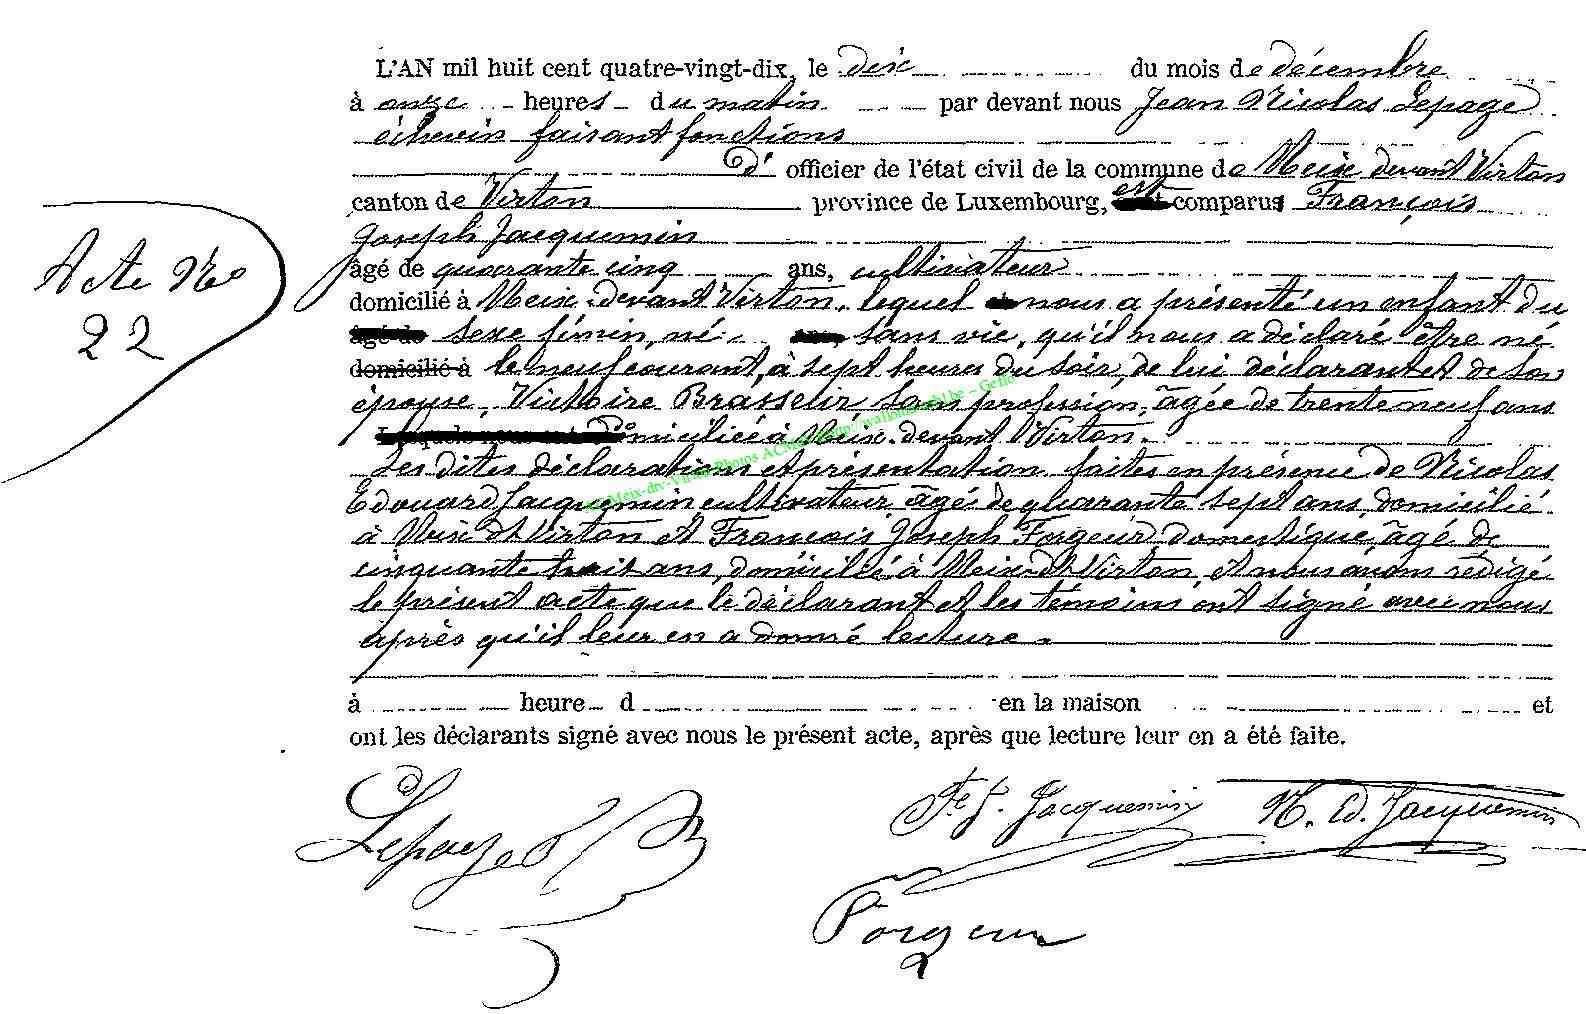 L'AN mil huit cent quatre-vingt-dix, le dix du mois de décembre
à onze heures du matin par devant nous Jean Nicolas Lepage
échevin faisant fonctions
d' officier de l'état civil de la commune de Meix devant Virton
canton de Virton province de Luxembourg, est comparu François
Joseph Jacquemin
âgé de quarante cinq ans, cultivateur
domicilié à Meix-devant Virton, lequel nous a présenté un enfant du
âgé de sexe féminin, né sans vie, qu'il nous a déclaré être né
domicilié à le neuf courant, à sept heures du soir, de lui déclarant et de son
épouse, Victoire Brasseur sans profession, âgée de trente neuf ans
domiciliée à Meix-devant Virton.
Les dites déclarations et présentation faites en présence de Nicolas
Edouard Jacquemin cultivateur, âgé de quarante sept ans, domicilié
à Meix dt Virton et François Joseph Forgeur domestique, âgé de
cinquante huit ans, domicilié à Meix-dt-Virton, et nous avons rédigé
le présent acte que le déclarant et les témoins ont signé avec nous
après qu'il leur en a donné lecture.
à heure d en la maison et
ont les déclarants signé avec nous le présent acte, après que lecture leur en a été faite.
Acte No
22
Lepage
Fs J. Jacquemin N. Ed. Jacquemin
Forgeur